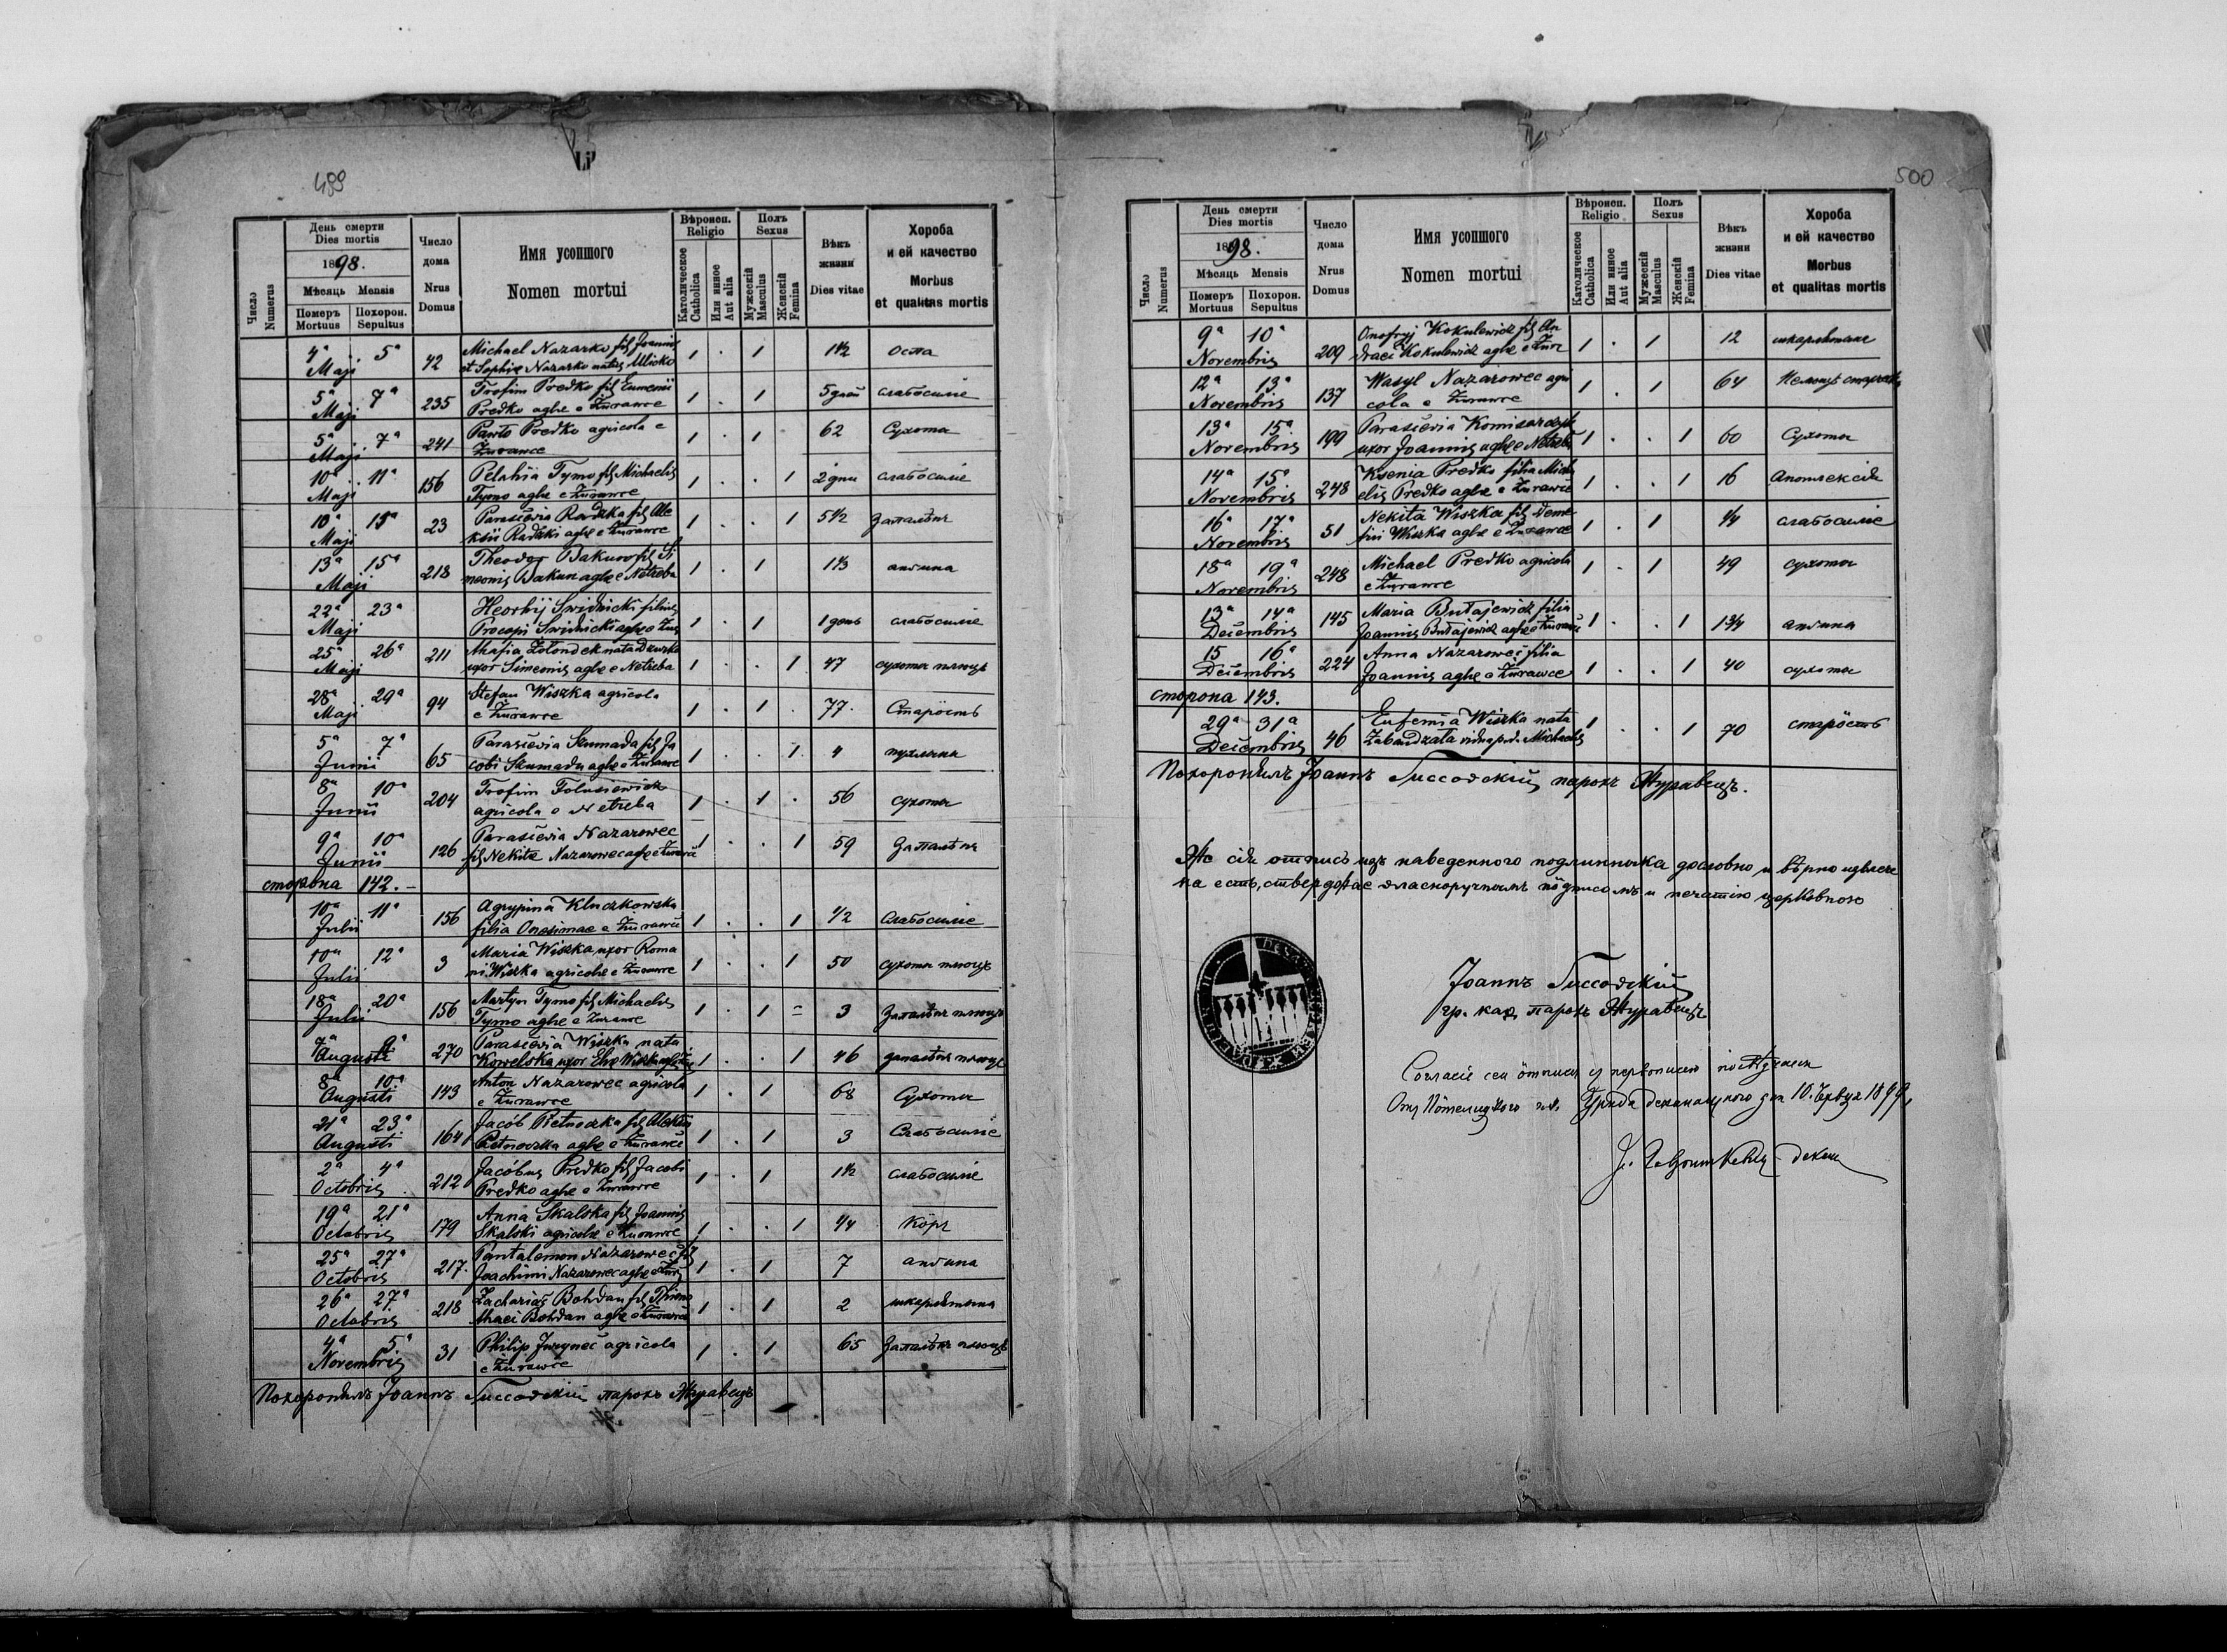 499
Li'
Число
Numerus
День смерти
Dies mortis
1898.
Мѣсяць Mensis
Померъ
Mortuus
Похорон.
Sepultus
Число
дома
Nrus
Domus
Имя усопшого
Nomen mortui
Вѣроисп.
Religio
Католическое
Catholica
Или инное
Aut alia
Полъ
Sexus
Мужескій
Masculus
Женскій
Femina
Вѣкъ
жизни
Dies vitae
Хороба
и ей качество
Morbus
et qualitas mortis
4ª 5ª Maji 42 Michael Nazarko fil. Joannis
et Sophiae Nazarko 1 . 1 1½ оспа
5ª 7ª Maji 235 Trofim Predko fil. Eumenii
Predko aglae e Żurawce 1 . 1 5 днѣй слабосиліе
5ª 7ª Maji 241 Pawło Predko agricola e
Żurawce 1 . 1 62 Сухоты
10ª 11ª Maji 156 Pelahia Tymo fil. Michaelis
Tymo aglae e Żurawce 1 . . 1 2 дни слабосиліе
10ª 13ª Maji 23 Parascevia Radzka fil. Ale
ksii Radzki aglae e Żurawce 1 . . 1 5½ Запалѣнье
13ª 15ª Maji 218 Theodor Bakun fil. Si
meonis Bakun aglae e Netreba 1 . 1 1⅓ ангина
22ª 23ª Maji Heorhij Swidnicki filius
Procopi Swidnicki aglae e Żur. 1 . 1 1 день слабосиліе
25ª 26ª Maji 211 Ahafia Żołondek nata
uxor Simeonis aglae e Netreba 1 . . 1 47 сухоты плюцъ
28ª 29ª Maji 94 Stefan Wiszka agricola
e Żurawce 1 . 1 . 77. Старôсть
5ª 7ª Junii 65 Parascevia Szumada fil. Ja
cobi Szumada aglae e Żurawce 1 . . 1 4 пухлина
8ª 10ª Junii 204 Trofim Tolusiewicz
agricola e Netreba 1 . 1 . 56 сухоты
9ª 10ª Junii 126 Parascevia Nazarowec
fil. Nekitae Nazarowec aglae e Żurawce 1 . . 1 59 Запалѣнье
сторона 142. —
10ª 11ª Julii 156 Agrypina Kluczkowska
filia Onesimae e Żurawce 1 . . 1 ½ Слабосиліе
10ª 12ª Julii 3 Maria Wiszka uxor Roma
ni Wiszka agricolae e Żurawce 1 . . 1 50 сухоты плюцъ
18ª 20ª Julii 156 Martyn Tymo fil. Michaelis
Tymo aglae e Żurawce 1 . 1 – 3 Запалѣнье плюцъ
7ª 9ª Augusti 270 Parascevia Wiszka nata
Kowelska uxor Eliae Wiszka 1 . . 1 46 запалѣнье плюцъ
8ª 10ª Augusti 143 Anton Nazarowec agricola
e Żurawce 1 . 1 68 Сухоты
21ª 23ª Augusti 164 Jacób Pietnoczka fil. Aleksii
Pietnoczka aglae e Żurawce 1 . 1 3 Слабосиліе
2ª 4ª Octobris 212 Jacóbus Predko fil. Jacobi
Predko aglae e Żurawce 1 . 1 1½ слабосиліе
19ª 21ª Octobris 179 Anna Skalska fil. Joannis
Skalski agricolae e Żurawce 1 . . 1 ¼ Кôръ
25ª 27ª Octobris 217. Pantalemon Nazarowec fil.
Joachimi Nazarowec aglae e Żur. 1 . 1 7 ангина
26ª 27ª Octobris 218 Zacharias Bohdan fil. Thimo
thaei Bohdan aglae e Żurawce 1 . 1 2 шкарлятына
4ª 5ª Novembris 31 Philip Jwyneć agricola
e Żurawce 1 . 1 65 Запалѣнье плюцъ
Похоронилъ Іоаннъ Гиссовскій парохъ Журавецъ
500
Число
Numerus
День смерти
Dies mortis
1898.
Мѣсяць Mensis
Померъ
Mortuus
Похорон.
Sepultus
Число
дома
Nrus
Domus
Имя усопшого
Nomen mortui
Вѣроисп.
Religio
Католическое
Catholica
Или инное
Aut alia
Полъ
Sexus
Мужескій
Masculus
Женскій
Femina
Вѣкъ
жизни
Dies vitae
Хороба
и ей качество
Morbus
et qualitas mortis
9ª 10ª Novembris 209 Onofryj Kokulewicz fil. An
draei Kokulewicz aglae e Żur. 1 . 1 12 шкарлятына
12ª 13ª Novembris 137 Wasyl Nazarowec agri
cola e Żurawce 1 . 1 64
13ª 15ª Novembris 199 Parascevia
uxor Joannis aglae e Netreba 1 . . 1 60 Сухоты
14ª 15ª Novembris 248 Ksenia Predko filia Mich
aelis Predko aglae e Żurawce 1 . . 1 16 Апоплексія
16ª 17ª Novembris 51 Nekita Wiszka fil. Deme
trii Wiszka aglae e Żurawce 1 . 1 ¼ слабосиліе
18ª 19ª Novembris 248 Michael Predko agricola
e Żurawce 1 . 1 49 сухоты
13ª 14ª Decembris 145 Maria Butajewicz filia
Joannis Butajewicz aglae e Żurawce 1 . . 1 1¾ ангина
15 16ª Decembris 224 Anna Nazarowec filia
Joannis aglae e Żurawce 1 . . 1 40 сухоты
сторона 143.
29ª 31ª Decembris 46 Eufemia Wiszka nata
vidua p. d. Michaelis 1 . . 1 70 старôсть
Похоронилъ Іоаннъ Гиссовскій парохъ Журавецъ.
Же сія отпись изъ наведенного подлинника дословно и вѣрно извлече
на есть, ствердждае власноручнымъ пôдписомъ и печатію церковною
Іоаннъ Гиссовскій
гр. каѳ. парохъ Журавецъ
Согласіе сеи ôтписи съ первописью
Отъ Пôтелицкого Уряда деканального дня 10. Червця 1899.
декан